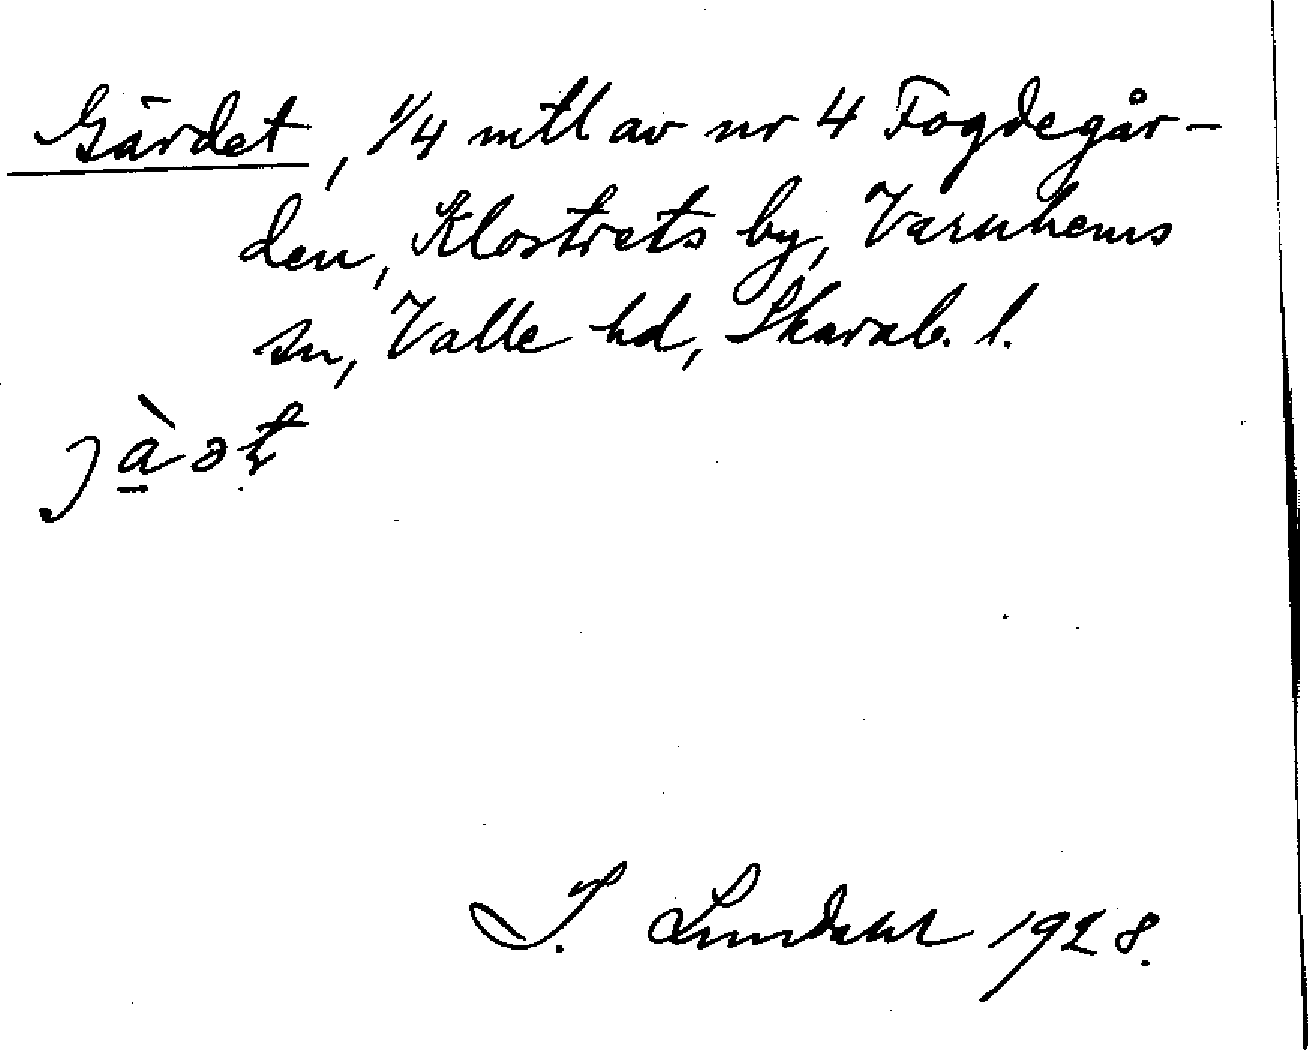 Gärdet, 1/4 mtl av nr 4 Fogdegår-
den, Klostrets by, Varnhems
sn, Valle hd, Skarab. l.
jàət
I. Lundahl 1928.